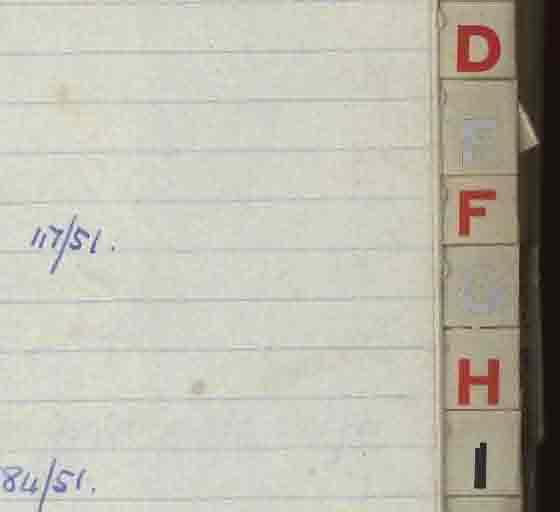 D
E
F
117/51.
G
H
I
84/51.